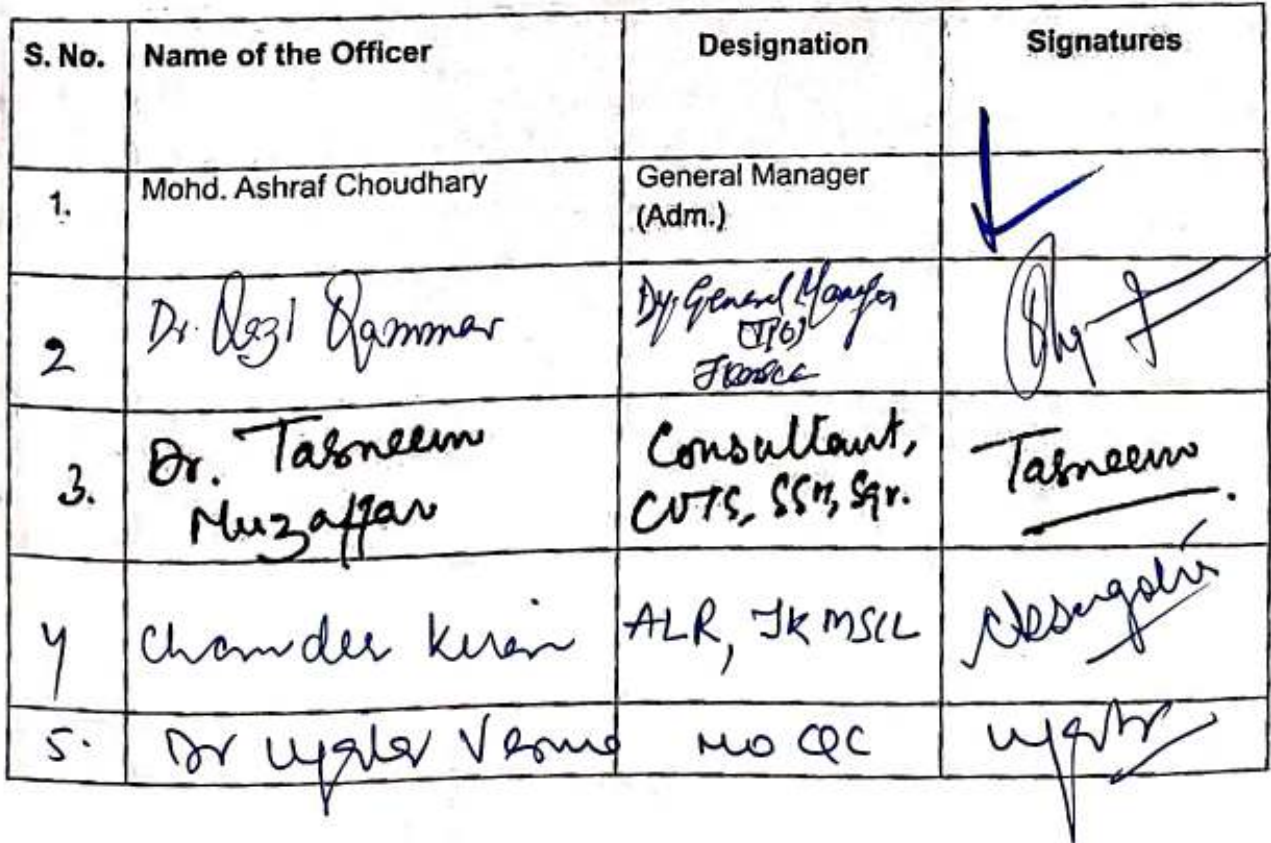 S. No. Name of the Officer Designation Signatures
1. Mohd. Ashraf Choudhary General Manager
(Adm.)
2 Dr. Qazi Qammar Dy. General Manager
JKMSCL
3. Dr. Tasneem Consultant, Tasneem
Muzaffar CVTS, SSH, Sgr.
4 Chander Kiran ALR, JKMSCL
5. Dr Verma MO CQC